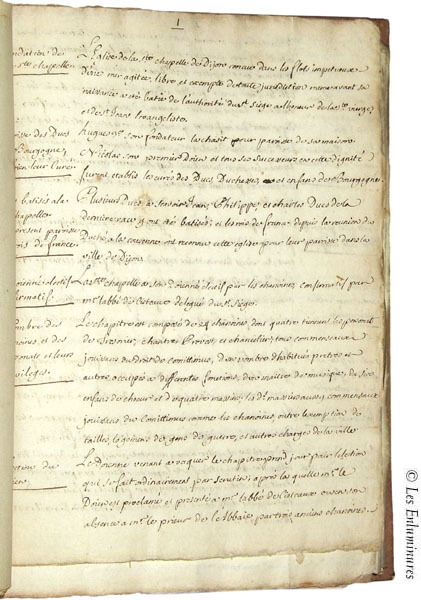 1
L'Eglise de la Ste chapelle de Dijon conceue dans les flots impetueux
d'une mer agitée, libre et exempte de toute jurisdiction mesme avant sa
naissance a esté batie de l'authorité du St Siège a l'honeur de la Ste vierge,
et de St Jean l'evangeliste.
Hugues son fondateur la choisit pour parroisse de sa maison.
Nicolas son premier Doien et tous ses successeurs en cette dignité
furent etablis les curés des Ducs, Duchesses, et enfans de Bourgogne.
Plusieurs Ducs a sçavoir Jean, Philippe, et charles Ducs de la
derniere race y ont été batisés; et les rois de france depuis la reunion du
Duché a la couronne ont reconnu cette eglise pour leur parroisse dans la
ville de Dijon.
La Ste chapelle a son doienné electif par les chanoines confirmatif par
Mr l'abbé de Citeaux delegué du St Siege.
Le chapitre est composé de 24 chanoines, dont quatre
chantre Prevost, et chancelier, tous commensaux
jouissans du droit de Comittimus, d'un nombre d'habitués pretres et
autres occupés a differentes fonctions, d'un maitre de musique, de six
enfans de choeur et de quatre
jouissans du Comittimus comme les chanoines, outre l'exemption de
tailles, logemens de gens de guerre, et autres charges de la ville
Le Doienné venant a vaquer le chapitre prend jour pour l'election
qui se fait ordinairement par scrutin; apres laquelle Mr le
Doien est proclamé et presenté a Mr l'abbé de Citeaux ou en son
absence a Mr le prieur de l'Abbaie par trois anciens chanoines.
ndation de
Ste chapelle
des Ducs
Bourgogne,
leur curé
batisés a la
chapelle
parroisse
de france
electif
irmatif
mbre des
noines et des
et leurs
vileges.
© Les Enluminures